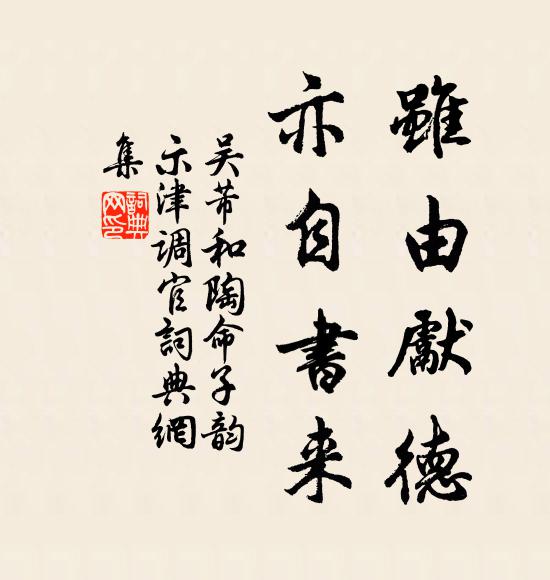 雖由獻德
亦自書来
吴芾和陶命子韵
示津调官詞典網
集
詞典
网印